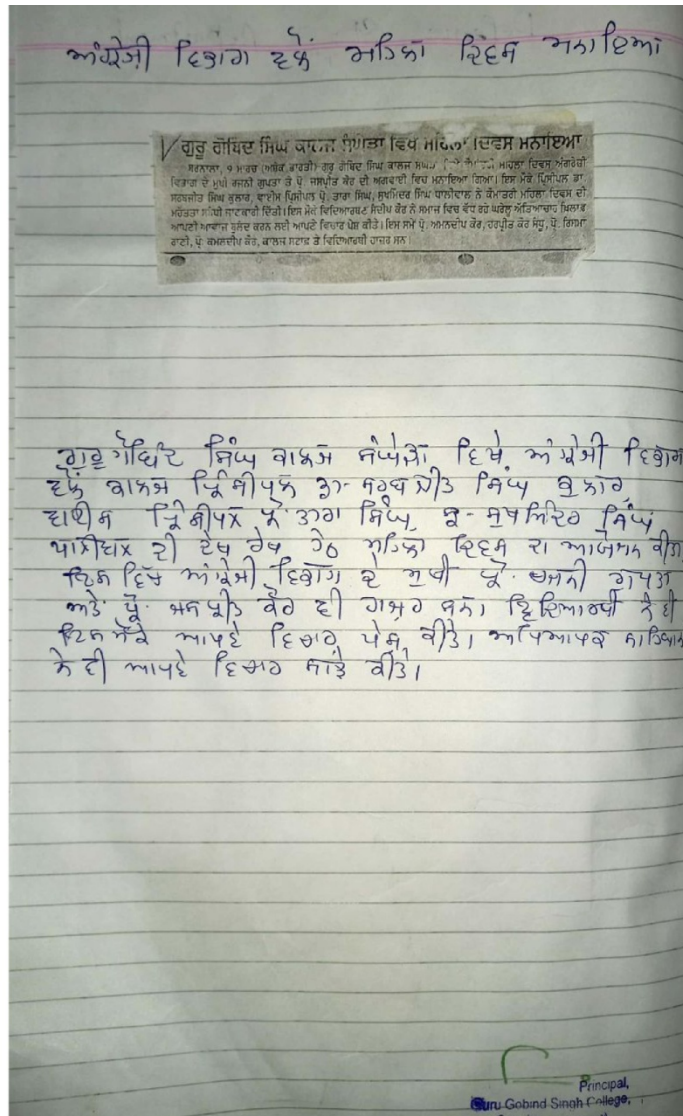 ਅੰਗਰੇਜ਼ੀ ਵਿਭਾਗ ਵਲੋਂ ਮਹਿਲਾ ਦਿਵਸ ਮਨਾਇਆ
ਗੁਰੂ ਗੋਬਿੰਦ ਸਿੰਘ ਕਾਲਜ ਸੰਘੇੜਾ ਵਿਖੇ ਮਹਿਲਾ ਦਿਵਸ ਮਨਾਇਆ
ਬਰਨਾਲਾ, 9 ਮਾਰਚ (ਅਸ਼ੋਕ ਭਾਰਤੀ) ਗੁਰੂ ਗੋਬਿੰਦ ਸਿੰਘ ਕਾਲਜ ਮਹਿਲਾ ਦਿਵਸ ਅੰਗਰੇਜ਼ੀ
ਵਿਭਾਗ ਦੇ ਮੁਖੀ ਰਜਨੀ ਗੁਪਤਾ ਤੇ ਪ੍ਰੋ. ਜਸਪ੍ਰੀਤ ਕੌਰ ਦੀ ਅਗਵਾਈ ਵਿਚ ਮਨਾਇਆ ਗਿਆ। ਇਸ ਮੌਕੇ ਪ੍ਰਿੰਸੀਪਲ ਡਾ.
ਸਰਬਜੀਤ ਸਿੰਘ ਕੁਲਾਰ, ਵਾਈਸ ਪ੍ਰਿੰਸੀਪਲ ਪ੍ਰੋ. ਤਾਰਾ ਸਿੰਘ, ਸੁਖਮਿੰਦਰ ਸਿੰਘ ਧਾਲੀਵਾਲ ਨੇ ਕੌਮਾਂਤਰੀ ਮਹਿਲਾ ਦਿਵਸ ਦੀ
ਮਹੱਤਤਾ ਸਬੰਧੀ ਜਾਣਕਾਰੀ ਦਿੱਤੀ। ਇਸ ਮੌਕੇ ਵਿਦਿਆਰਥਣ ਸੰਦੀਪ ਕੌਰ ਨੇ ਸਮਾਜ ਵਿਚ ਵੱਧ ਰਹੇ ਘਰੇਲੂ ਅੱਤਿਆਚਾਰ ਖ਼ਿਲਾਫ਼
ਆਪਣੀ ਆਵਾਜ਼ ਬੁਲੰਦ ਕਰਨ ਲਈ ਆਪਣੇ ਵਿਚਾਰ ਪੇਸ਼ ਕੀਤੇ। ਇਸ ਸਮੇਂ ਪ੍ਰੋ. ਅਮਨਦੀਪ ਕੌਰ, ਹਰਪ੍ਰੀਤ ਕੌਰ ਸੰਧੂ, ਪ੍ਰੋ. ਰਿਸਮਾ
ਰਾਣੀ, ਪ੍ਰੋ. ਕਮਲਦੀਪ ਕੌਰ, ਕਾਲਜ ਸਟਾਫ਼ ਤੇ ਵਿਦਿਆਰਥੀ ਹਾਜ਼ਰ ਸਨ।
ਗੁਰੂ ਗੋਬਿੰਦ ਸਿੰਘ ਕਾਲਜ ਸੰਘੇੜਾ ਵਿਖੇ ਅੰਗਰੇਜੀ ਵਿਭਾਗ
ਵਲੋਂ ਕਾਲਜ ਪ੍ਰਿੰਸੀਪਲ ਡਾ. ਸਰਬਜੀਤ ਸਿੰਘ ਕੁਲਾਰ,
ਵਾਈਸ ਪ੍ਰਿੰਸੀਪਲ ਪ੍ਰੋ. ਤਾਰਾ ਸਿੰਘ, ਸੁਖਮਿੰਦਰ ਸਿੰਘ
ਧਾਲੀਵਾਲ ਦੀ ਦੇਖ ਰੇਖ ਹੇਠ ਮਹਿਲਾ ਦਿਵਸ ਦਾ ਆਯੋਜਨ ਕੀਤਾ
ਜਿਸ ਵਿੱਚ ਅੰਗਰੇਜ਼ੀ ਵਿਭਾਗ ਦੇ ਮੁਖੀ ਪ੍ਰੋ. ਰਜਨੀ ਗੁਪਤਾ
ਅਤੇ ਪ੍ਰੋ. ਜਸਪ੍ਰੀਤ ਕੌਰ ਵੀ ਹਾਜ਼ਰ ਸਨ। ਵਿਦਿਆਰਥੀ ਨੇ ਵੀ
ਇਸ ਮੌਕੇ ਆਪਣੇ ਵਿਚਾਰ ਪੇਸ਼ ਕੀਤੇ। ਅਧਿਆਪਕ ਸਾਹਿਬਾਨ
ਨੇ ਵੀ ਆਪਣੇ ਵਿਚਾਰ ਸਾਂਝੇ ਕੀਤੇ।
Principal,
Guru Gobind Singh College,